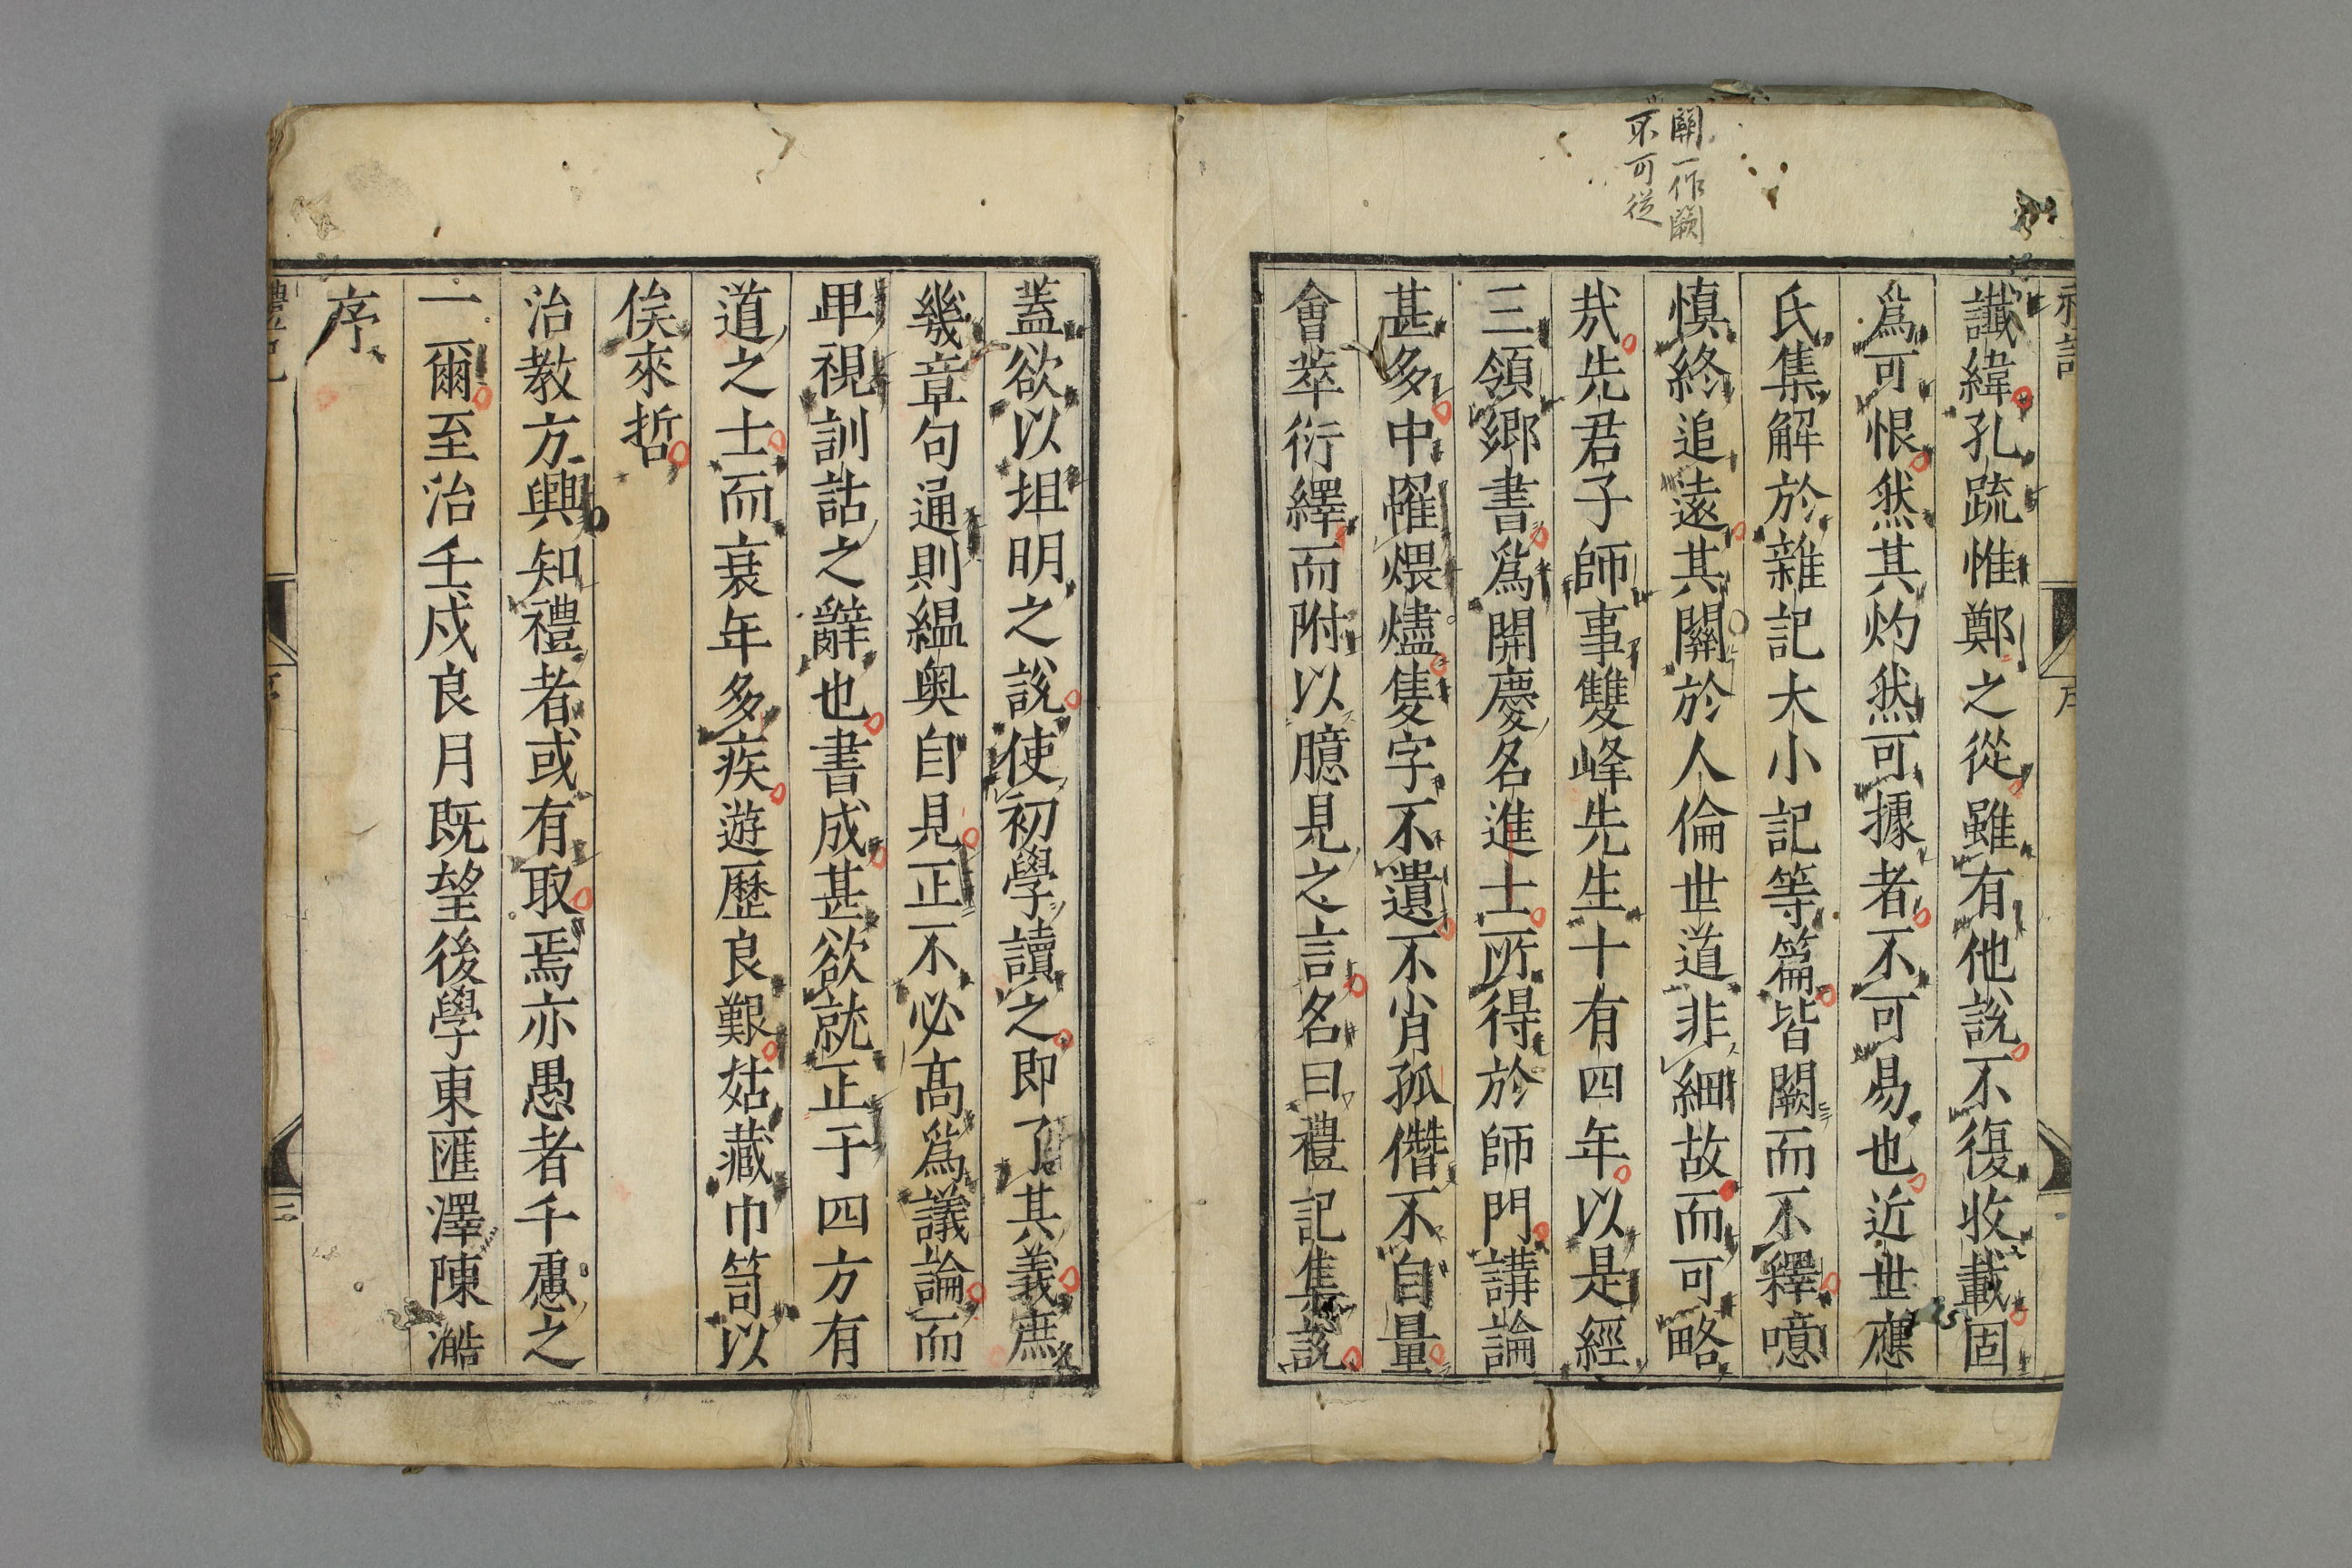 關一作闕
不可從
讖緯孔疏惟鄭之從雖有他說不復收載固
爲可恨然其灼然可據者不可易也近世應
氏集解於雜記大小記等篇皆闕而不釋噫
慎終追遠其關於人倫世道非細故而可略
㢤先君子師事雙峰先生十有四年以是經
三領鄉書爲開慶名進士所得於師門講論
甚多中罹煨燼隻字不遺不肖孤僣不自量
會萃衍繹而附以臆見之言名曰禮記集說
蓋欲以坦明之說使初學讀之即了其義庶
幾章句通則縕奥自見正不必高爲議論而
卑視訓詁之辭也書成甚欲就正于四方有
道之士而衰年多疾遊歷良艱姑藏巾笥以
俟來哲
治教方興知禮者或有取焉亦愚者千慮之
一爾至治壬戍良月既望後學東匯澤陳澔
序
禮記
三